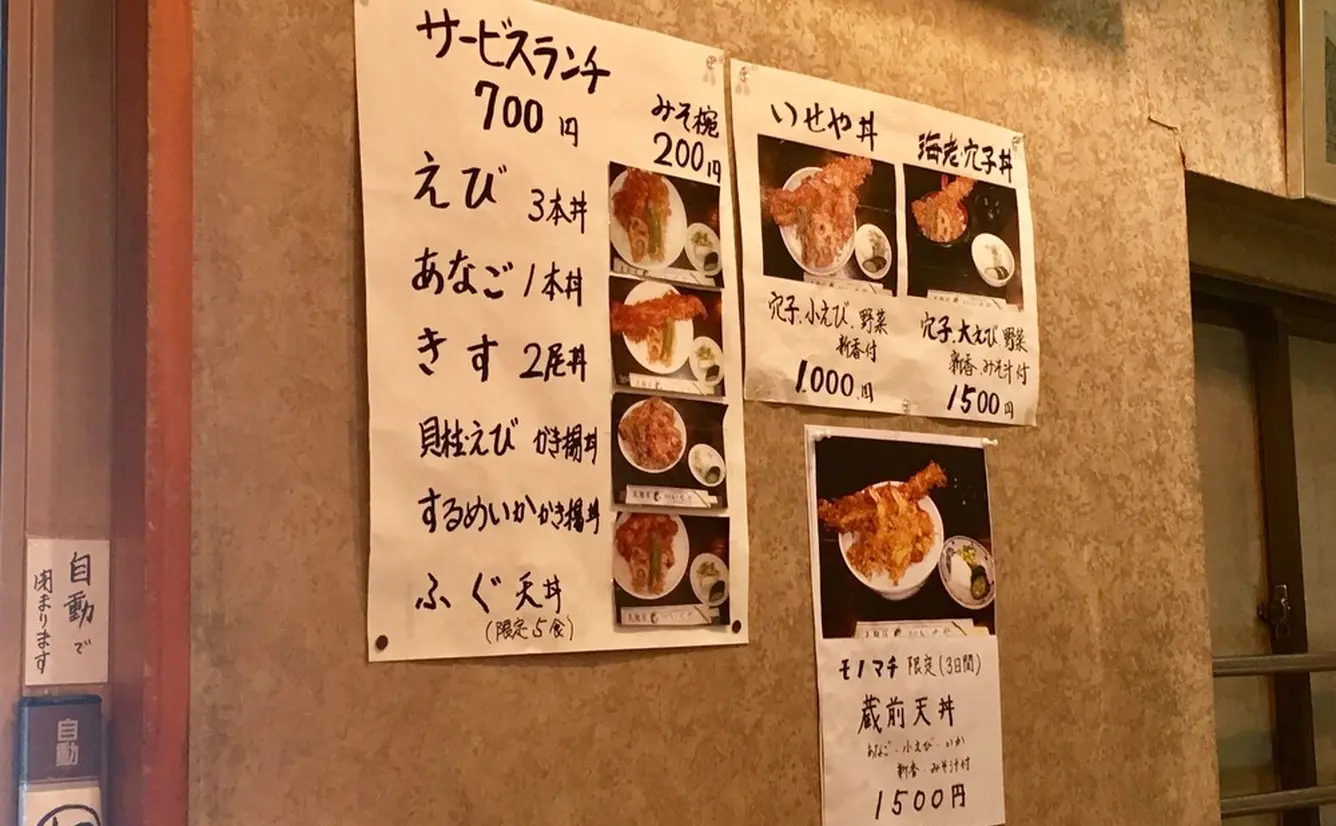 サービスランチ
700円
みそ椀
200円
えび 3本丼
あなご 1本丼
きす 2尾丼
貝柱・えび かき揚丼
するめいかかき揚丼
ふぐ 天丼
(限定5食)
いせや丼
穴子、小えび、野菜
新香付
1,000円
海老・穴子丼
穴子、大えび、野菜
新香、みそ汁付
1500円
モノマチ 限定(3日間)
蔵前天丼
あなご・小えび・いか
新香・みそ汁付
1500円
自動で
閉まります
自動